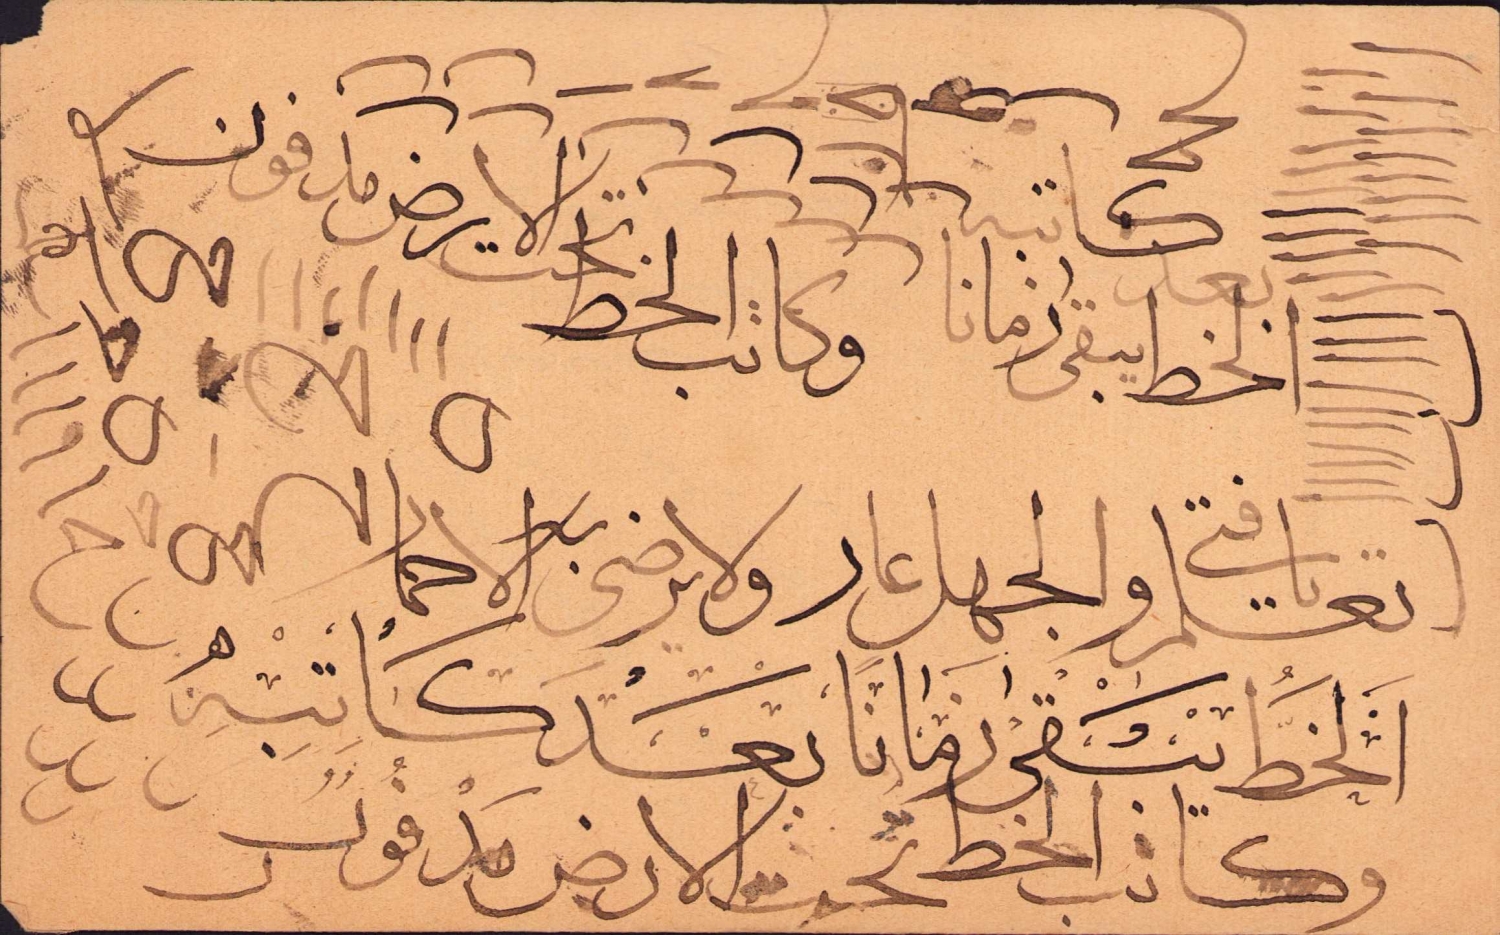 الخط يبقى زمانا بعد كاتبه
وكاتب الخط تحت الارض مدفون
تعلم يا فتى والجهل عار ولا يرضى به الا حمار
اَلخَطُّ يَبْقٰى زَمَانًا بَعْدَ كَاتِبِهِ
وكاتب الخط تحت الارض مَدْفُون